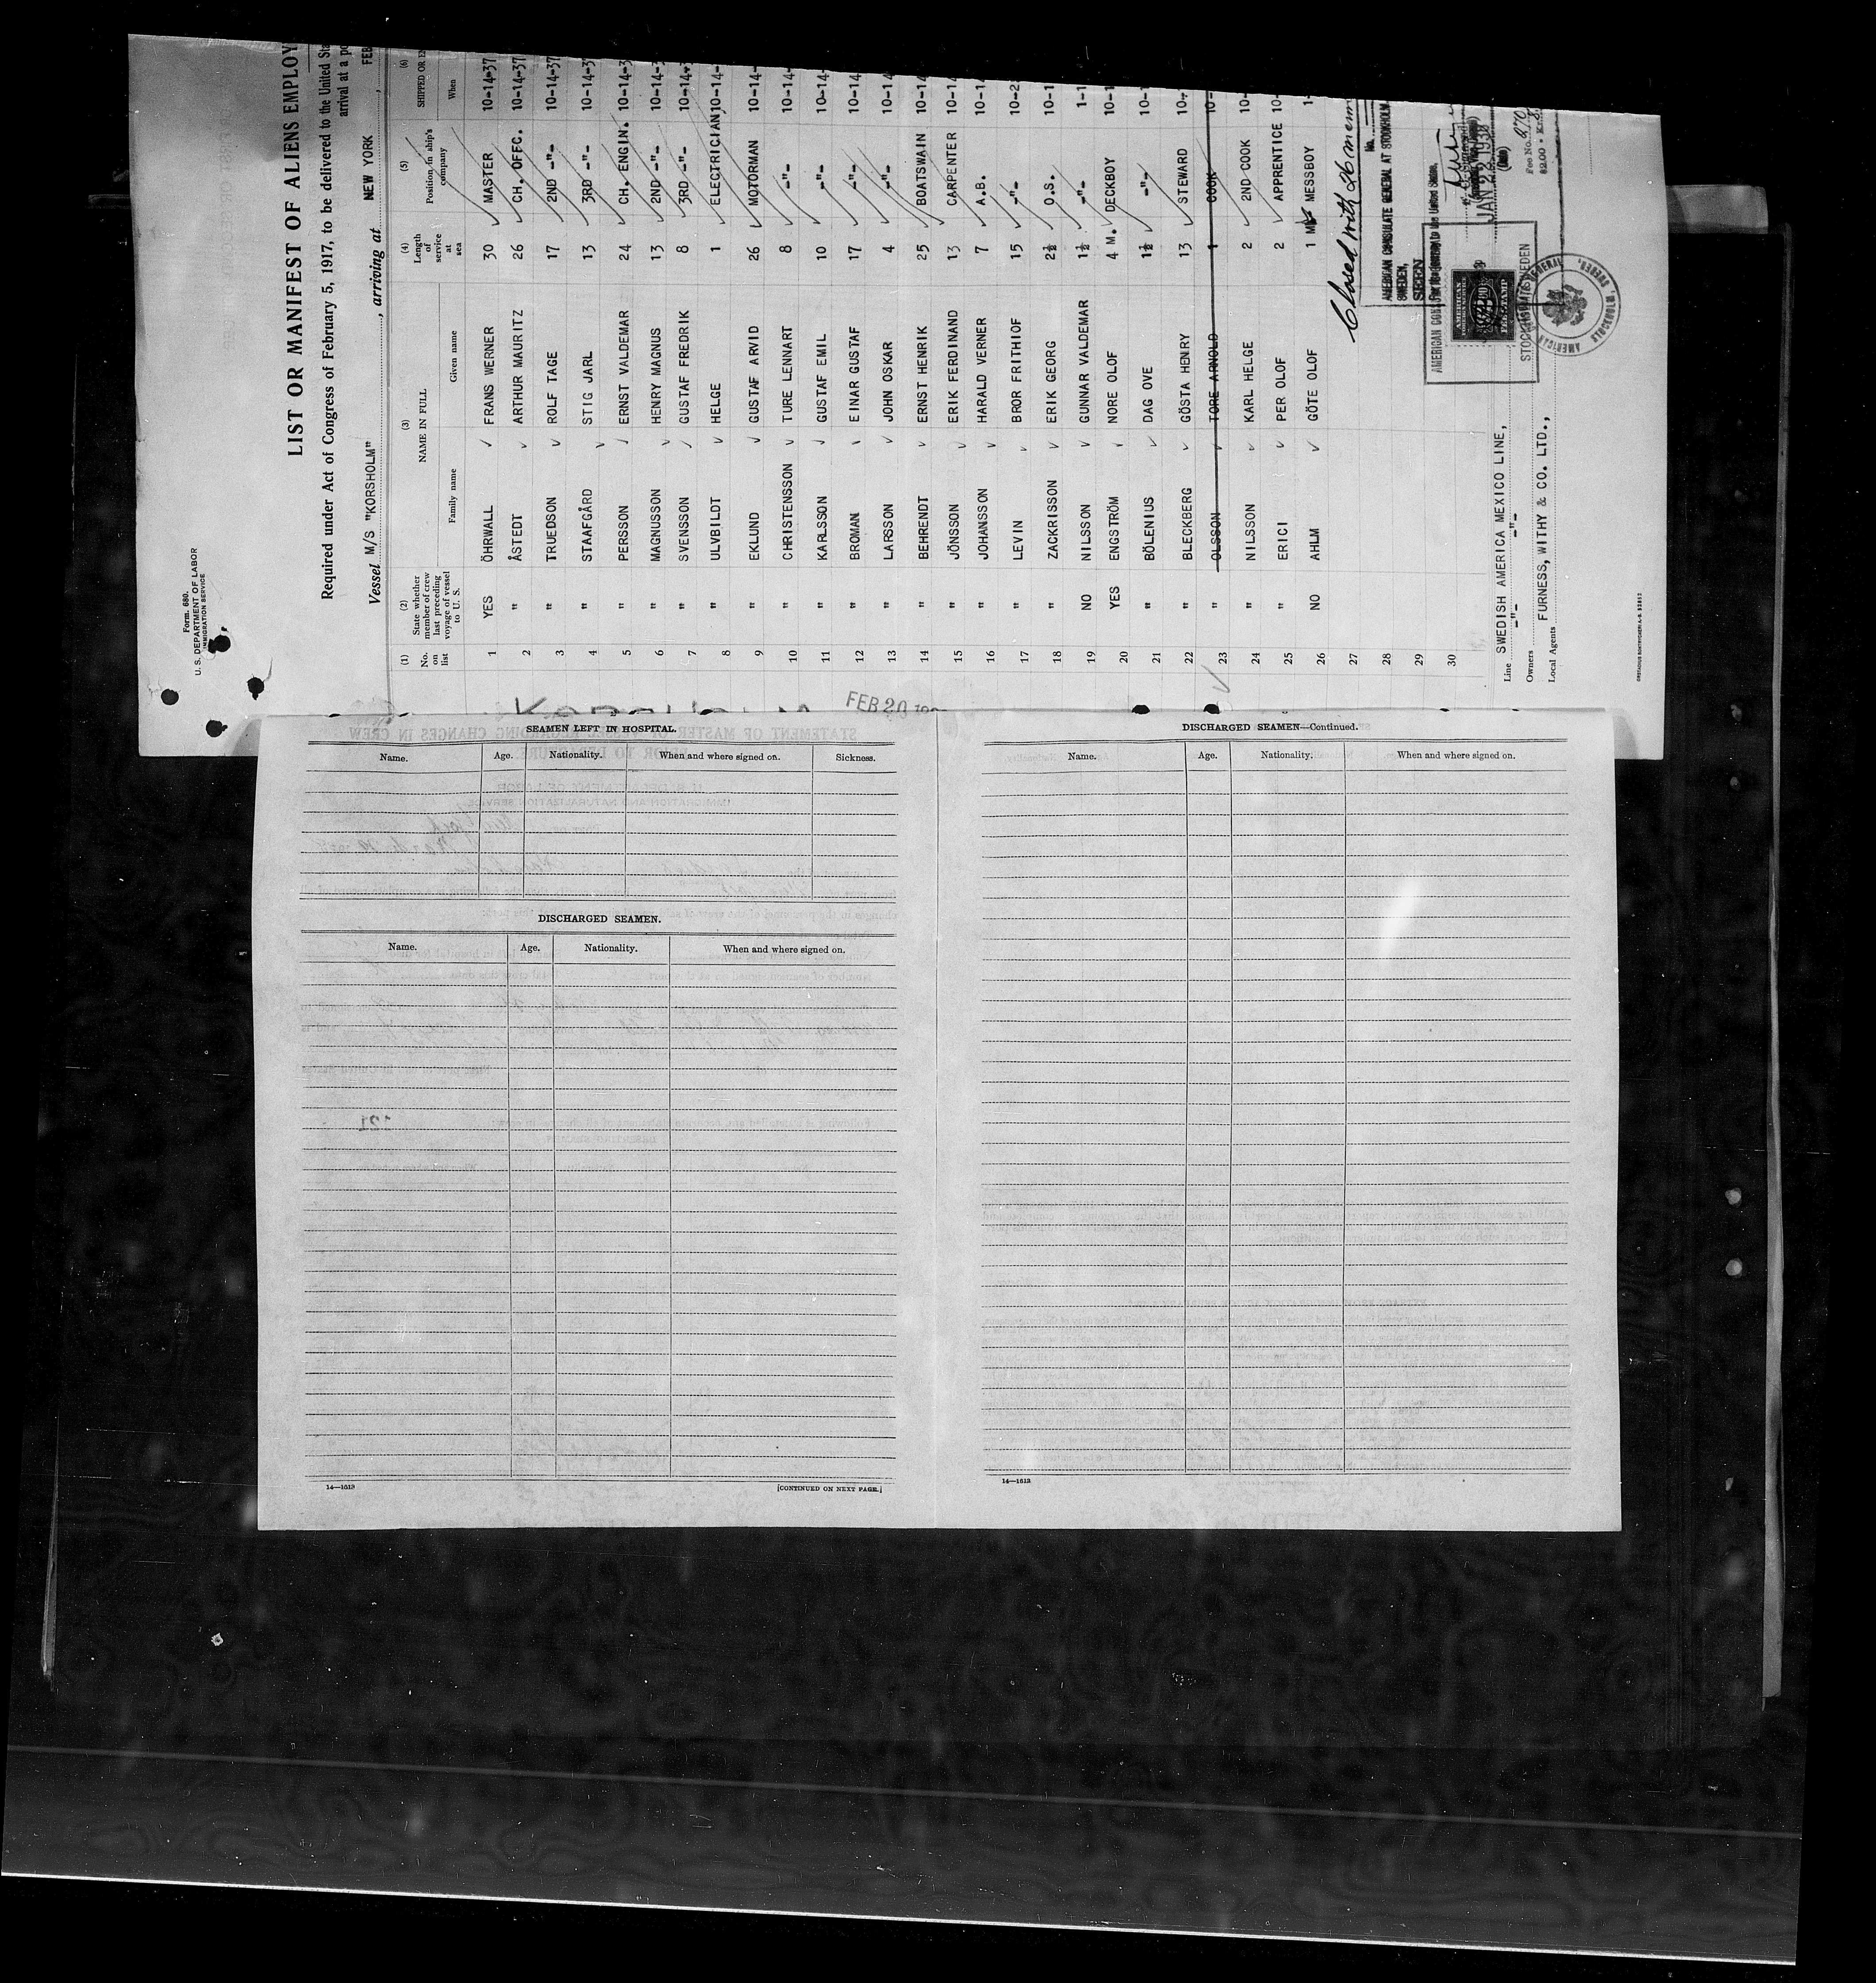 Form 680.
U. S. DEPARTMENT OF LABOR
IMMIGRATION SERVICE
LIST OR MANIFEST OF ALIENS EMPLOY
Required under Act of Congress of February 5, 1917, to be delivered to the United Sta
arrival at a po
Vessel M/S "KORSHOLM" , arriving at NEW YORK , FEB
(1) (2) (3) (4) (5) (6)
No. on list State whether member of crew last preceding voyage of vessel to U. S. NAME IN FULL Family name Given name Length of service at sea Position in ship's company SHIPPED OR EN When
1 YES ÖHRWALL FRANS WERNER 30 MASTER 10-14-37
2 " ÅSTEDT ARTHUR MAURITZ 26 CH. OFFC. 10-14-37
3 " TRUEDSON ROLF TAGE 17 2ND -"- 10-14-37
4 " STAAFGÅRD STIG JARL 13 3RD -"- 10-14-3
5 " PERSSON ERNST VALDEMAR 24 CH. ENGIN. 10-14-3
6 " MAGNUSSON HENRY MAGNUS 13 2ND -"- 10-14-3
7 " SVENSSON GUSTAF FREDRIK 8 3RD -"- 10-14-3
8 " ULVBILDT HELGE 1 ELECTRICIAN 10-14-
9 " EKLUND GUSTAF ARVID 26 MOTORMAN 10-14-
10 " CHRISTENSSON TURE LENNART 8 -"- 10-14-
11 " KARLSSON GUSTAF EMIL 10 -"- 10-14-
12 " BROMAN EINAR GUSTAF 17 -"- 10-14
13 " LARSSON JOHN OSKAR 4 -"- 10-14
14 " BEHRENDT ERNST HENRIK 25 BOATSWAIN 10-14
15 " JÖNSSON ERIK FERDINAND 13 CARPENTER 10-14
16 " JOHANSSON HARALD VERNER 7 A.B. 10-14
17 " LEVIN BROR FRITHIOF 15 -"- 10-2
18 " ZACKRISSON ERIK GEORG 2½ O.S. 10-1
19 NO NILSSON GUNNAR VALDEMAR 1½ -"- 1-1
20 YES ENGSTRÖM NORE OLOF 4 M. DECKBOY 10-1
21 " BÖLENIUS DAG OVE 1½ -"- 10-
22 " BLECKBERG GÖSTA HENRY 13 STEWARD 10-
23 " OLSSON TORE ARNOLD 1 COOK 10-
24 " NILSSON KARL HELGE 2 2ND COOK 10-
25 " ERICI PER OLOF 2 APPRENTICE 10-
26 NO AHLM GÖTE OLOF 1 MESSBOY 1-
27
28
29
30
Closed with 26 mem
No.
AMERICAN CONSULATE GENERAL AT STOCKHOLM
SWEDEN,
SEEN
JAN 22 1938
(Date)
Fee No. 870
AMERICAN
FEE STAMP
STOCKHOLM, SWEDEN
AMERICAN
STOCKHOLM, SWEDEN.
Line SWEDISH AMERICA MEXICO LINE,
Owners -"- -"-
Local Agents FURNESS, WITHY & CO. LTD.,
FEB 20
SEAMEN LEFT IN HOSPITAL.
Name. Age. Nationality. When and where signed on. Sickness.
DISCHARGED SEAMEN.
Name. Age. Nationality. When and where signed on.
14—1513 [CONTINUED ON NEXT PAGE.]
DISCHARGED SEAMEN—Continued.
Name. Age. Nationality. When and where signed on.
14—1513